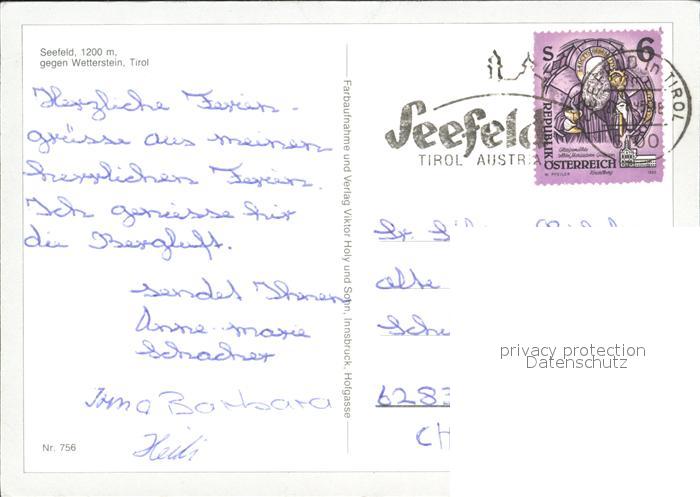 Seefeld, 1200 m,
gegen Wetterstein, Tirol
Herzliche Ferien-
grüsse aus meinen
herrlichen Ferien.
Ich geniesse hir
die Bergluft.
sendet Ihnen
Anne-marie
Schacher
Irma Barbara
Heidi
Nr. 756
Farbaufnahme und Verlag Viktor Holy und Sohn, Innsbruck, Hofgasse
Seefeld
TIROL AUSTRIA
in TIROL
S 6
REPUBLIK
ÖSTERREICH
alte
6283
CH
privacy protection
Datenschutz